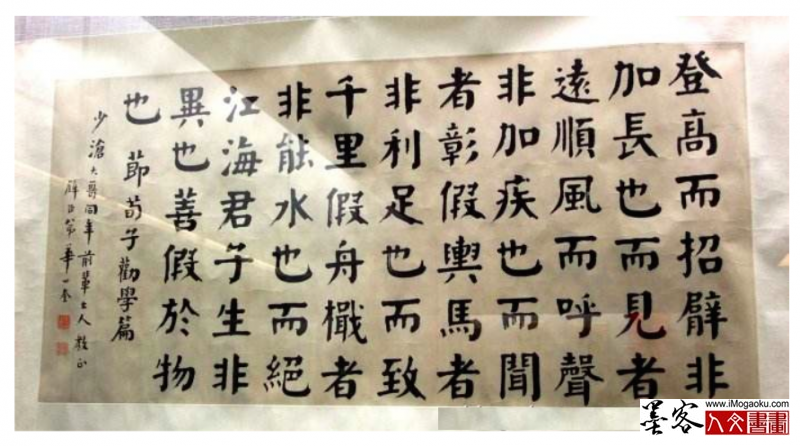 登高而招臂非
加長也而見者
遠順風而呼聲
非加疾也而聞
者彰假輿馬者
非利足也而致
千里假舟檝者
非能水也而絕
江海君子生非
異也善假於物
也 節荀子勸學篇
少滄大哥同年前輩大人教正
璧臣弟華世奎
www.iMogaoku.com
墨客人文書畫